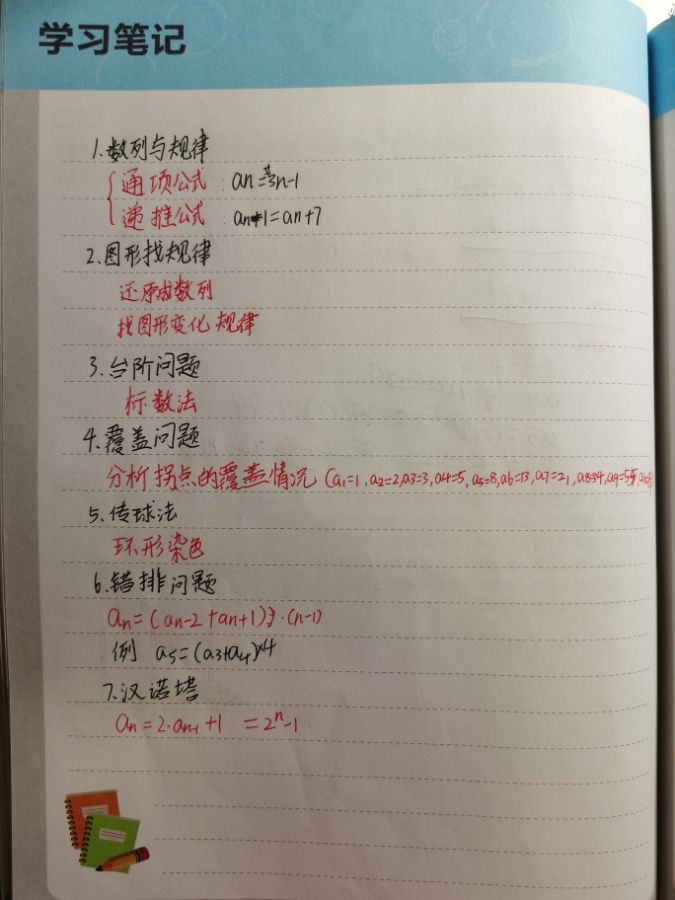 学习笔记
1.数列与规律
通项公式：an=3n-1
递推公式：an+1=an+7
2.图形找规律
还原成数列
找图形变化规律
3.台阶问题
标数法
4.覆盖问题
分析拐点的覆盖情况(a1=1,a2=2,a3=3,a4=5,a5=8,a6=13,a7=21,a8=34,a9=55,
5.传球法
环形染色
6.错排问题
an=(an-2+an+1)·(n-1)
例 a5=(a3+a4)×4
7.汉诺塔
an=2·an-1+1 =2ⁿ-1